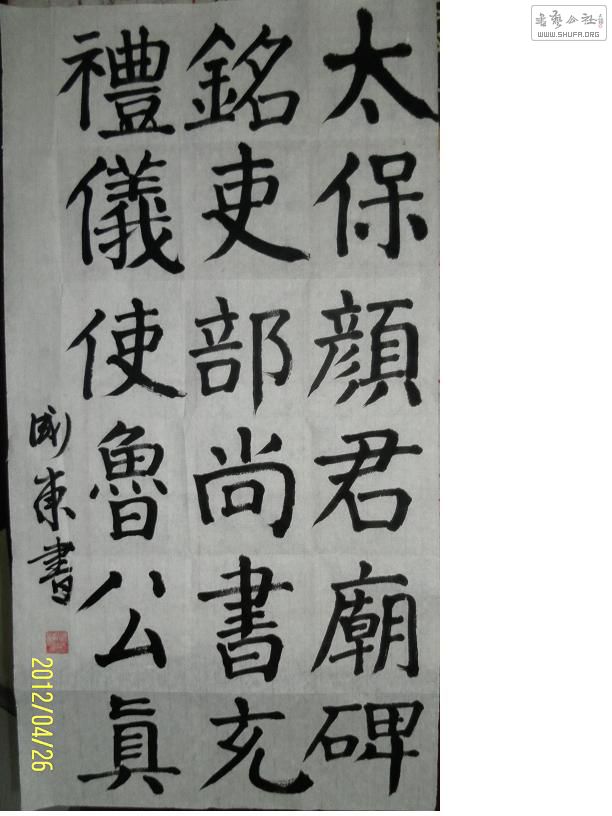 太保顏君廟碑
銘吏部尚書充
禮儀使魯公真
東書
2012/04/26
書藝公社
WWW.SHUFA.ORG